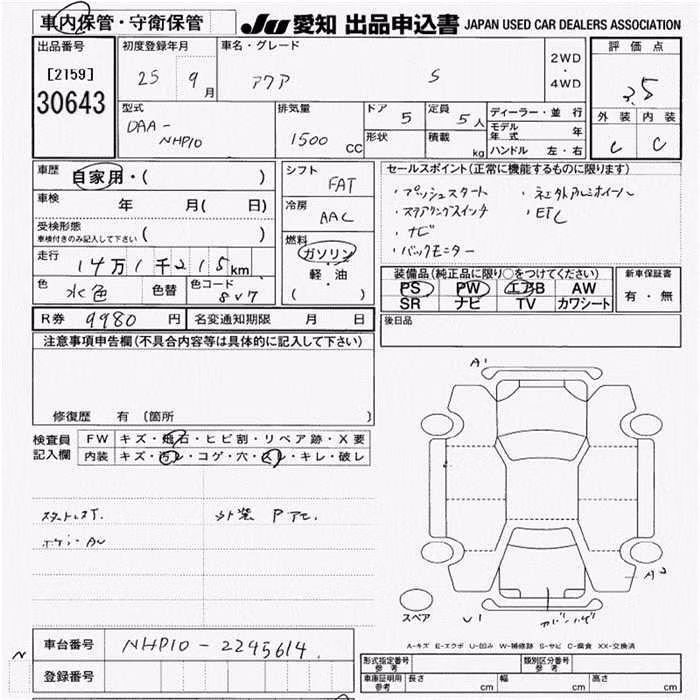 車内保管・守衛保管
JU 愛知 出品申込書 JAPAN USED CAR DEALERS ASSOCIATION
出品番号
[2159]
30643
初度登録年月
25 9月
車名・グレード
アクア S
2WD
・
4WD
評価点
3.5
外装 内装
C C
型式
DAA-
NHP10
排気量
1500 CC
ドア 5
形状
定員 5人
積載 kg
ディーラー・並 行
モデル年式 年
ハンドル 左・右
車歴
自家用・( )
車検
年 月( 日)
受検形態
車検付きのみ記入して下さい ( )
走行
14万1千215km
色
水色
色替
色コード
8V7
シフト
FAT
冷房
AAC
燃料
ガソリン
・
軽・油
( )
セールスポイント(正常に機能するものに限ります)
・プッシュスタート ・社外アルミホイール
・ステアリングスイッチ ・ETC
・ナビ
・バックモニター
装備品(純正品に限り○をつけてください)
PS PW エアB AW
SR ナビ TV カワシート
新車保証書
有・無
R券 9980円 名変通知期限 月 日
後日品
注意事項申告欄(不具合内容等は具体的に記入して下さい)
修復歴 有 〔箇所 〕
検査員
記入欄
FW キズ・飛石・ヒビ割・リペア跡・X要
内装 キズ・汚れ・コゲ・穴・スレ・キレ・破レ
スタートレスT. 外装 Pアセ.
A1
A2
U1
スペア
A-キズ E-エクボ U-凹み W-補修跡 S-サビ C-腐食 XX-交換済
車台番号 NHP10-2245614.
N
登録番号
形式指定番号
参考
類別区分番号
参考
車庫証明用
参考
長さ cm 幅 cm 高さ cm